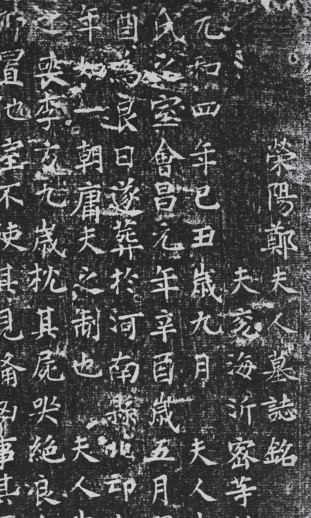 滎陽鄭夫人墓誌銘
夫兗海沂密等
元和四年己丑歲九月 夫人
氏之室會昌元年辛酉歲五月
酉為良日遂葬於河南縣 邙
年如一朝庸夫之制也 夫人
之喪李方九歲枕其屍哭絕良
所置也室不使其見脩 事其